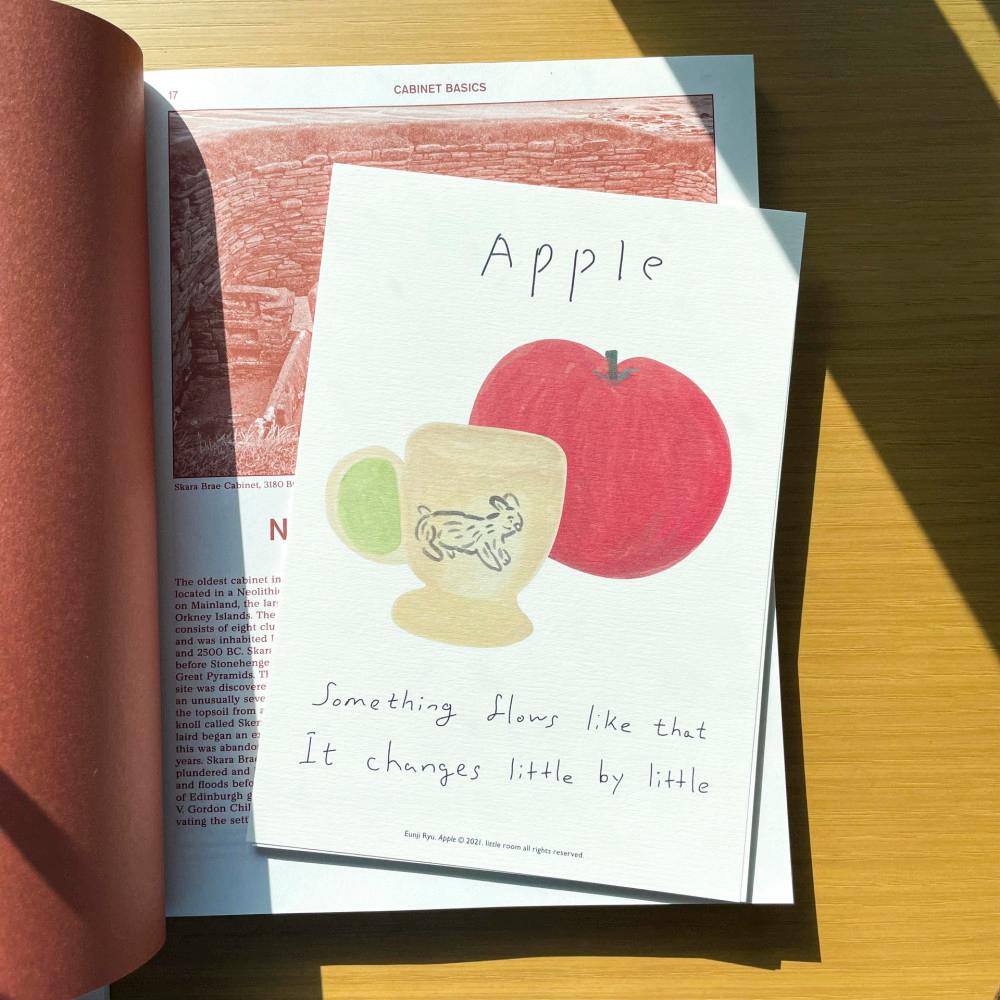 17
CABINET BASICS
Skara Brae Cabinet, 3180
The oldest cabinet in
located in a Neolithic
on Mainland, the
Orkney Islands. The
consists of eight
and was inhabited
and 2500 BC. Skara
before Stonehenge
Great Pyramids.
site was discovered
an unusually
the topsoil from a
knoll called
laird began an
this was
years. Skara Brae
plundered and
and floods
of Edinburgh
V. Gordon
vating the
Apple
Something flows like that
It changes little by little
Eunji Ryu. Apple © 2021. little room all rights reserved.